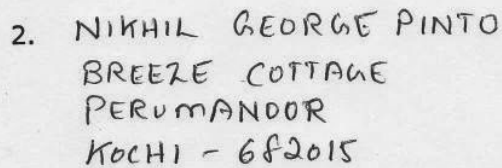 2. NIKHIL GEORGE PINTO
BREEZE COTTAGE
PERUMANOOR
KOCHI - 682015